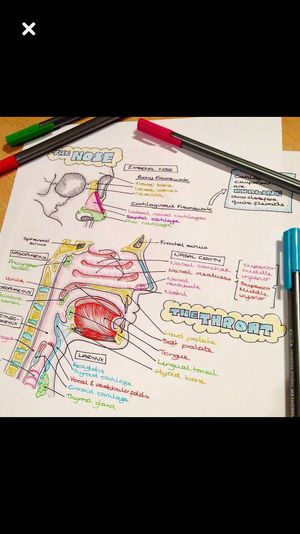 THE NOSE
EXTERNAL NOSE
Bony framework
Frontal bone
Nasal bones
Maxilla
Cartilaginous framework
Lateral nasal cartilages
Septal cartilage
Alar cartilage
are
HYALINE
and therefore
quite flexible
Sphenoid
sinus
Frontal sinus
NASOPHARYNX
Pharyngeal
tonsil
Uvula
NASAL CAVITY
Nasal conchae
Nasal meatuses
Nasal
vestibule
Nostril
Superior
Middle
Inferior
Superior
Middle
Inferior
THE THROAT
Palatine
tonsil
Hard palate
Soft palate
Tongue
Lingual tonsil
Hyoid bone
LARYNX
Epiglottis
Thyroid cartilage
Vocal & vestibular folds
Cricoid cartilage
Thyroid gland